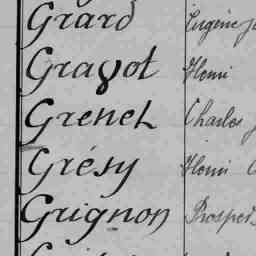 Grard Eugène
Gravot Henri
Grenet Charles
Grésy Henri
Grignon Prosper